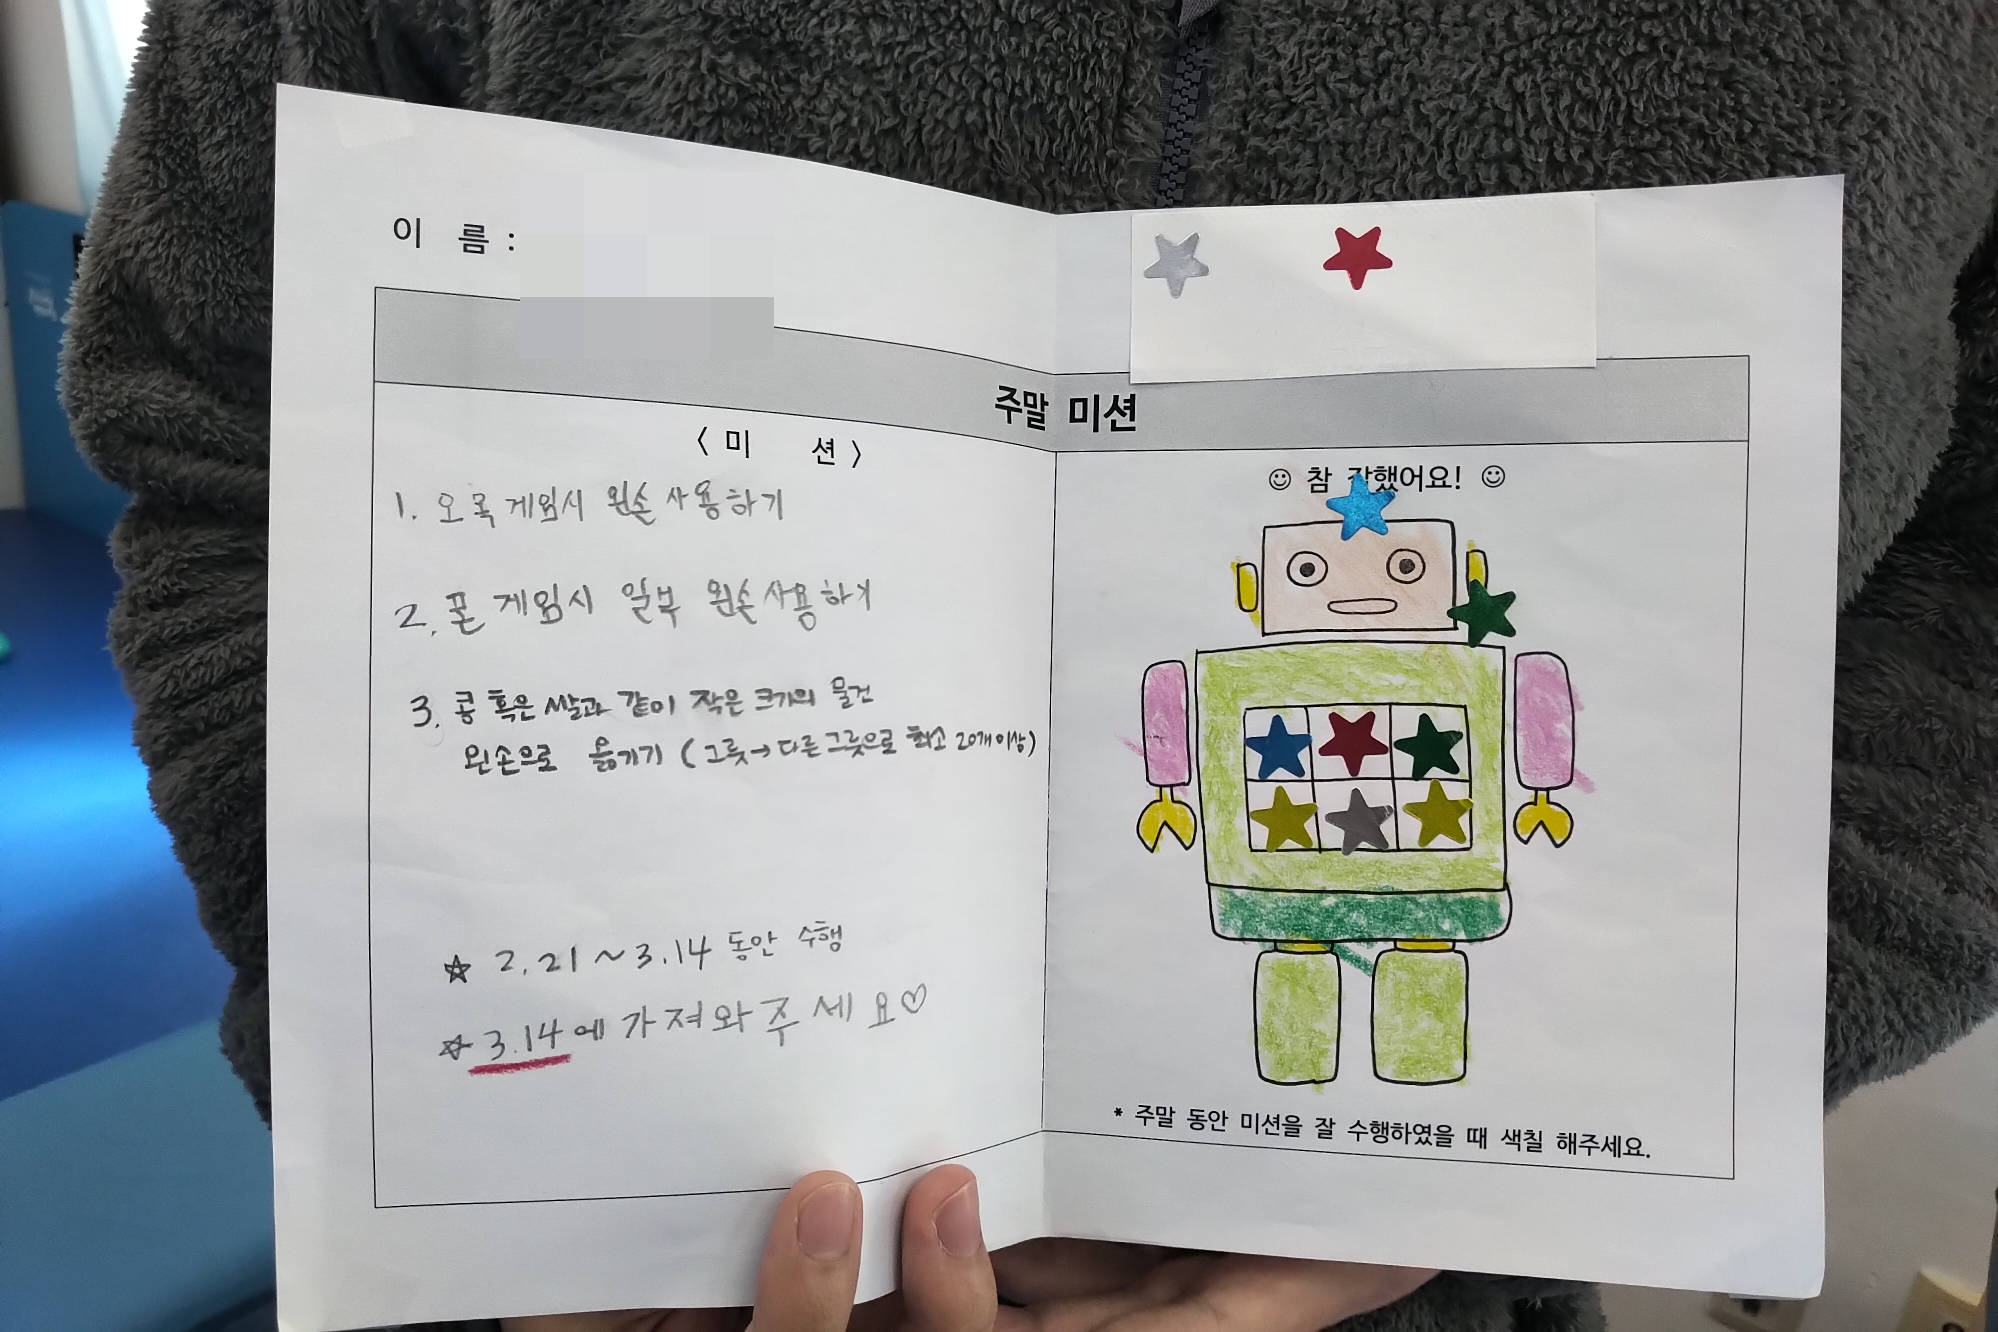 이 름 :
주말 미션
< 미 션 >
1. 오목 게임시 왼손 사용하기
2. 폰 게임시 일부 왼손 사용하기
3. 콩 혹은 쌀과 같이 작은 크기의 물건
왼손으로 옮기기 (그릇→다른 그릇으로 최소 20개 이상)
☆ 2.21 ~ 3.14 동안 수행
☆ 3.14에 가져와 주세요♡
☺ 참 잘했어요! ☺
* 주말 동안 미션을 잘 수행하였을 때 색칠 해주세요.